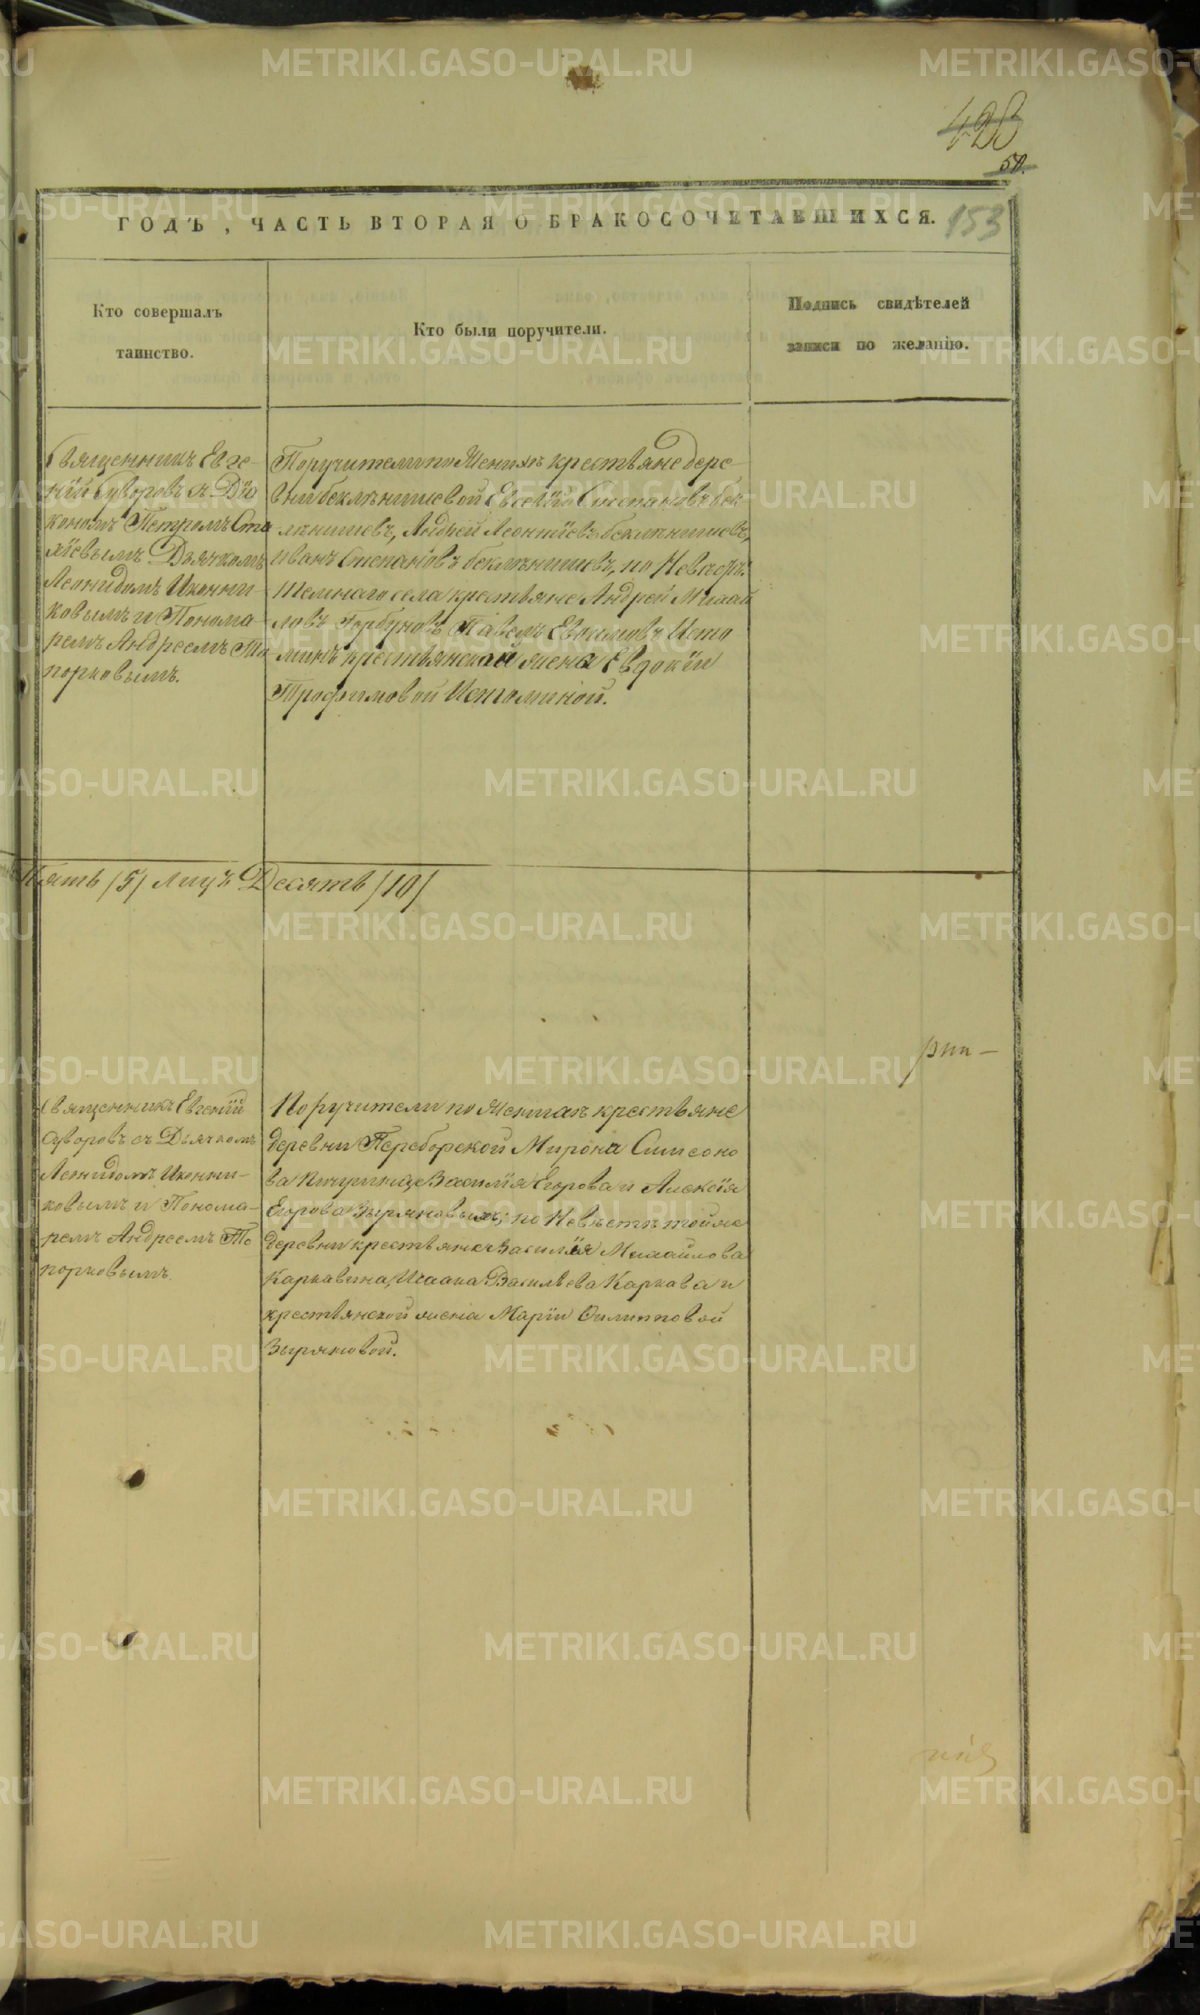 428
50.
ГОДЪ, ЧАСТЬ ВТОРАЯ О БРАКОСОЧЕТАВШИХСЯ.
153
Кто совершалъ
таинство.
Кто были поручители.
Подпись свидѣтелей
записи по желанію.
Священникъ Евге-
ній Суворовъ съ Діа
кономъ Петромъ
Дьячкомъ
Леонидомъ Иконни-
ковымъ и Понома-
ремъ Андреемъ То
порковымъ.
Поручители по Женихѣ крестьяне дере-
вни Беклѣнишевой Евсевій Степановъ Бек
лѣнишевъ, Андрей Леонтіевъ Беклѣнишевъ,
Иванъ Степановъ Беклѣнишевъ, по Невѣстѣ
села крестьяне Андрей Михай
ловъ Горбуновъ Павелъ Евсимовъ Исто
минъ крестьянской жена Евдокіи
Трофимовой Истоминой.
Пять /5/ лицъ Десять /10/
Священникъ Евгеній
Суворовъ съ Дьячкомъ
Леонидомъ Иконни-
ковымъ и Понома-
ремъ Андреемъ То
порковымъ.
Поручители по Женихѣ крестьяне
деревни Переборской Мирона Симеоно
ва Василія Егорова и Алексія
Егорова Зыряновыхъ; по Невѣстѣ тойже
деревни крестьянъ Василія Михайлова
Каркавина, Исаака Васильева и
крестьянской жена Маріи Филипповой
Зыряновой.
METRIKI.GASO-URAL.RU